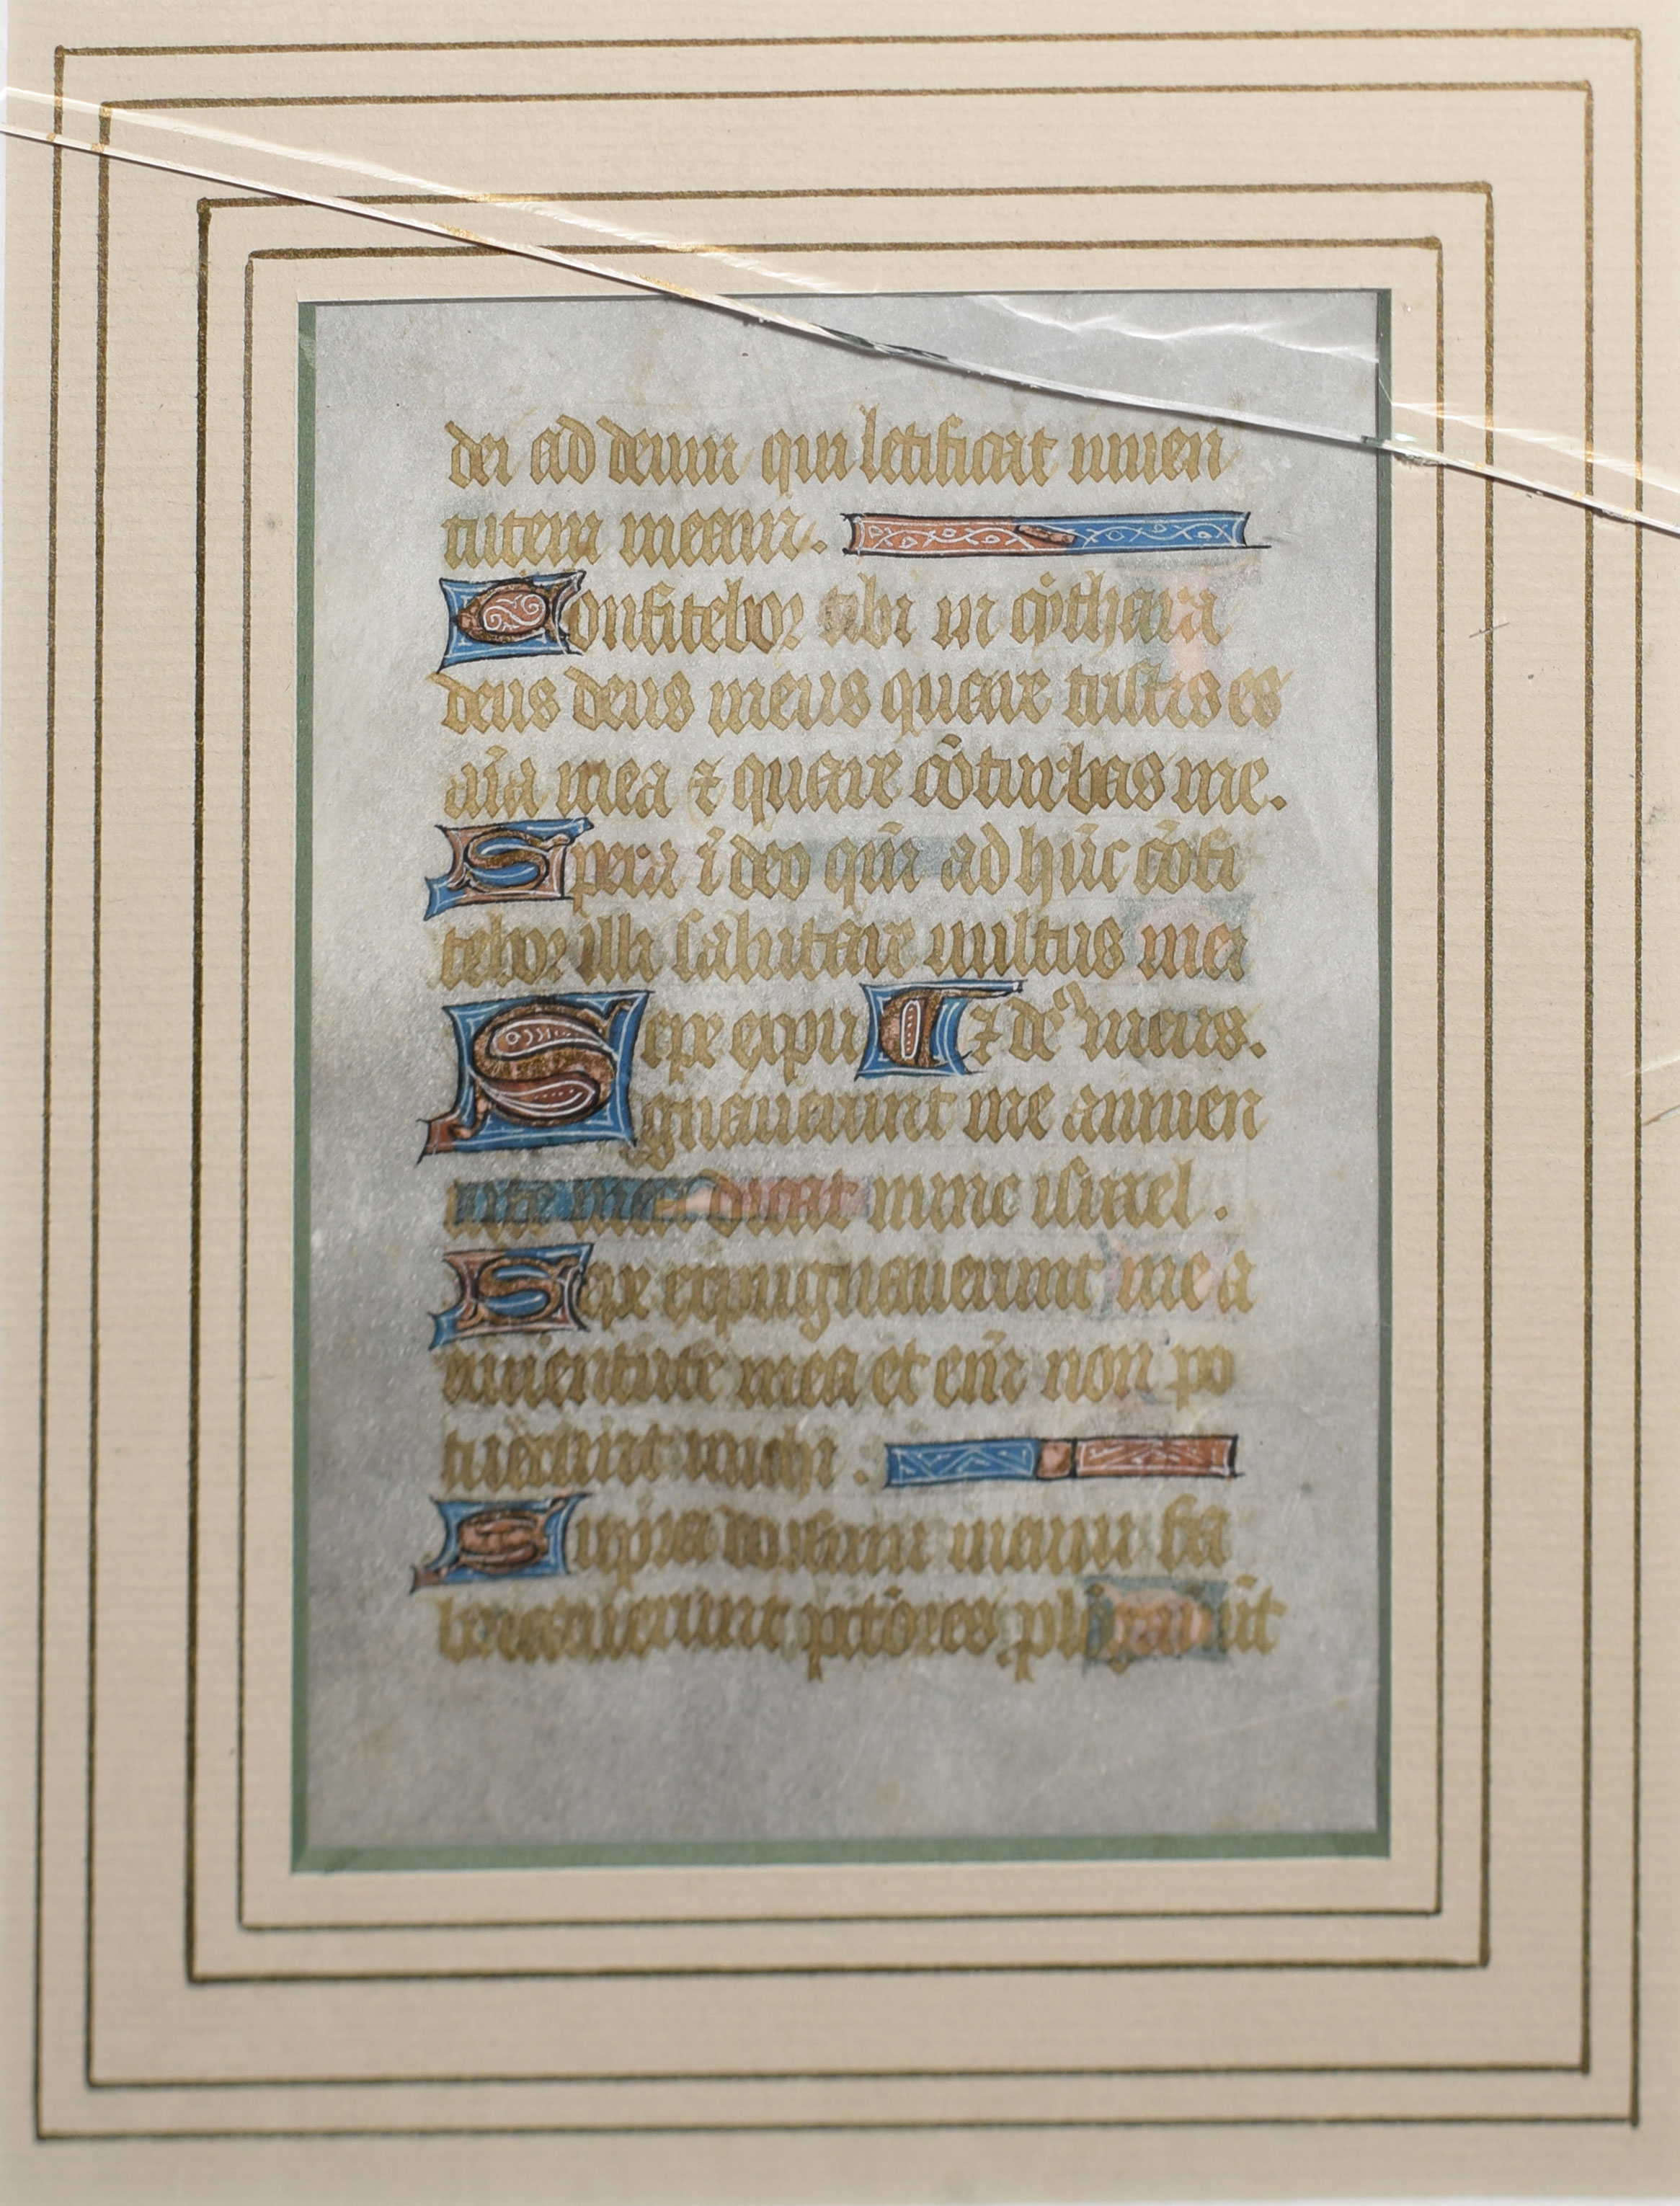 dei ad deum qui letificat iuuen
tutem meam.
Confitebor tibi in cythara
deus deus meus quare tristis es
aīa mea ⁊ quare cōturbas me.
Spera ī deo qm̄ ad hūc cōfi
tebor illi salutare uultus mei
Sepe expu Et de meus.
gnauerunt me a iuuen
tute mea dicat nunc israel.
Sepe expugnauerunt me a
iuuentute mea et enī non po
tuerunt michi.
Supra dorsum meum fa
bricauerunt pctōres plōgauūt